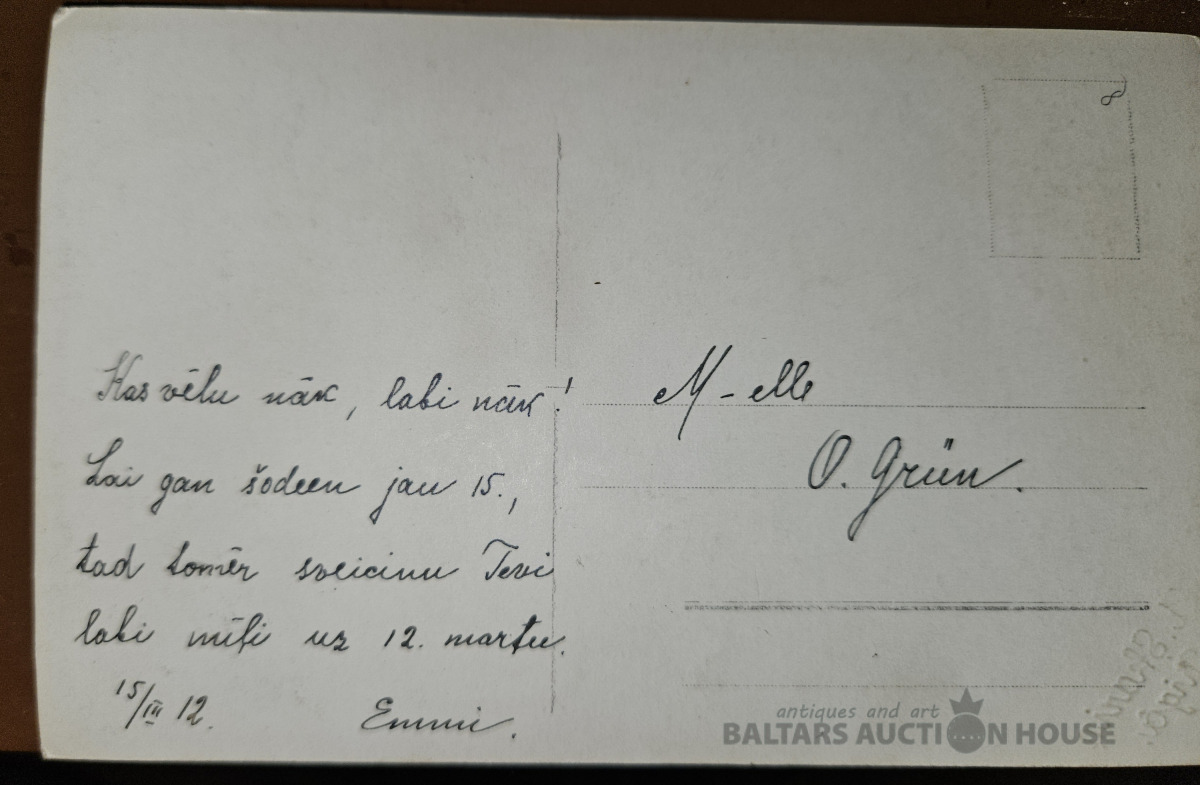 Kas vēlu nāk, labi nāk!
Lai gan šodeen jau 15.,
tad tomēr sveicinu Tevi
labi mīļi uz 12. martu.
15/III 12.
Emmi.
M-elle
O. Grün.
antiques and art
BALTARS AUCTION HOUSE